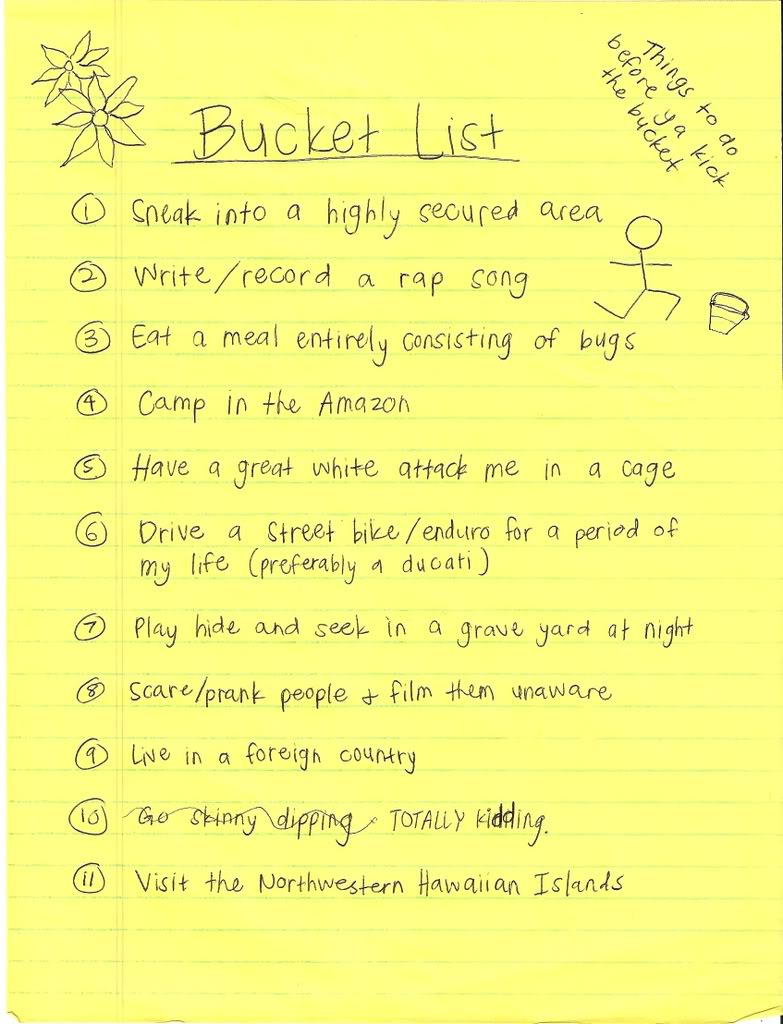 Things to do
before ya kick
the bucket
Bucket List
1 Sneak into a highly secured area
2 Write/record a rap song
3 Eat a meal entirely consisting of bugs
4 Camp in the Amazon
5 Have a great white attack me in a cage
6 Drive a street bike/enduro for a period of
my life (preferably a ducati)
7 Play hide and seek in a grave yard at night
8 Scare/prank people & film them unaware
9 Live in a foreign country
10 Go skinny dipping. TOTALLY kidding.
11 Visit the Northwestern Hawaiian Islands